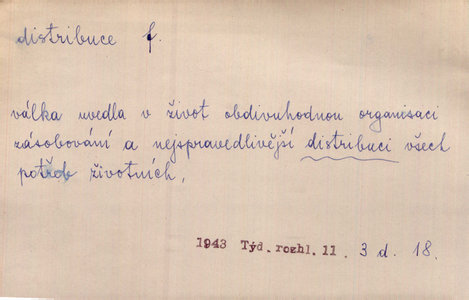 distribuce f.
válka uvedla v život obdivuhodnou organisaci
zásobování a nejspravedlivější distribuci všech
potřeb životních,
1943 Týd. rozhl. 11. 3 d. 18.